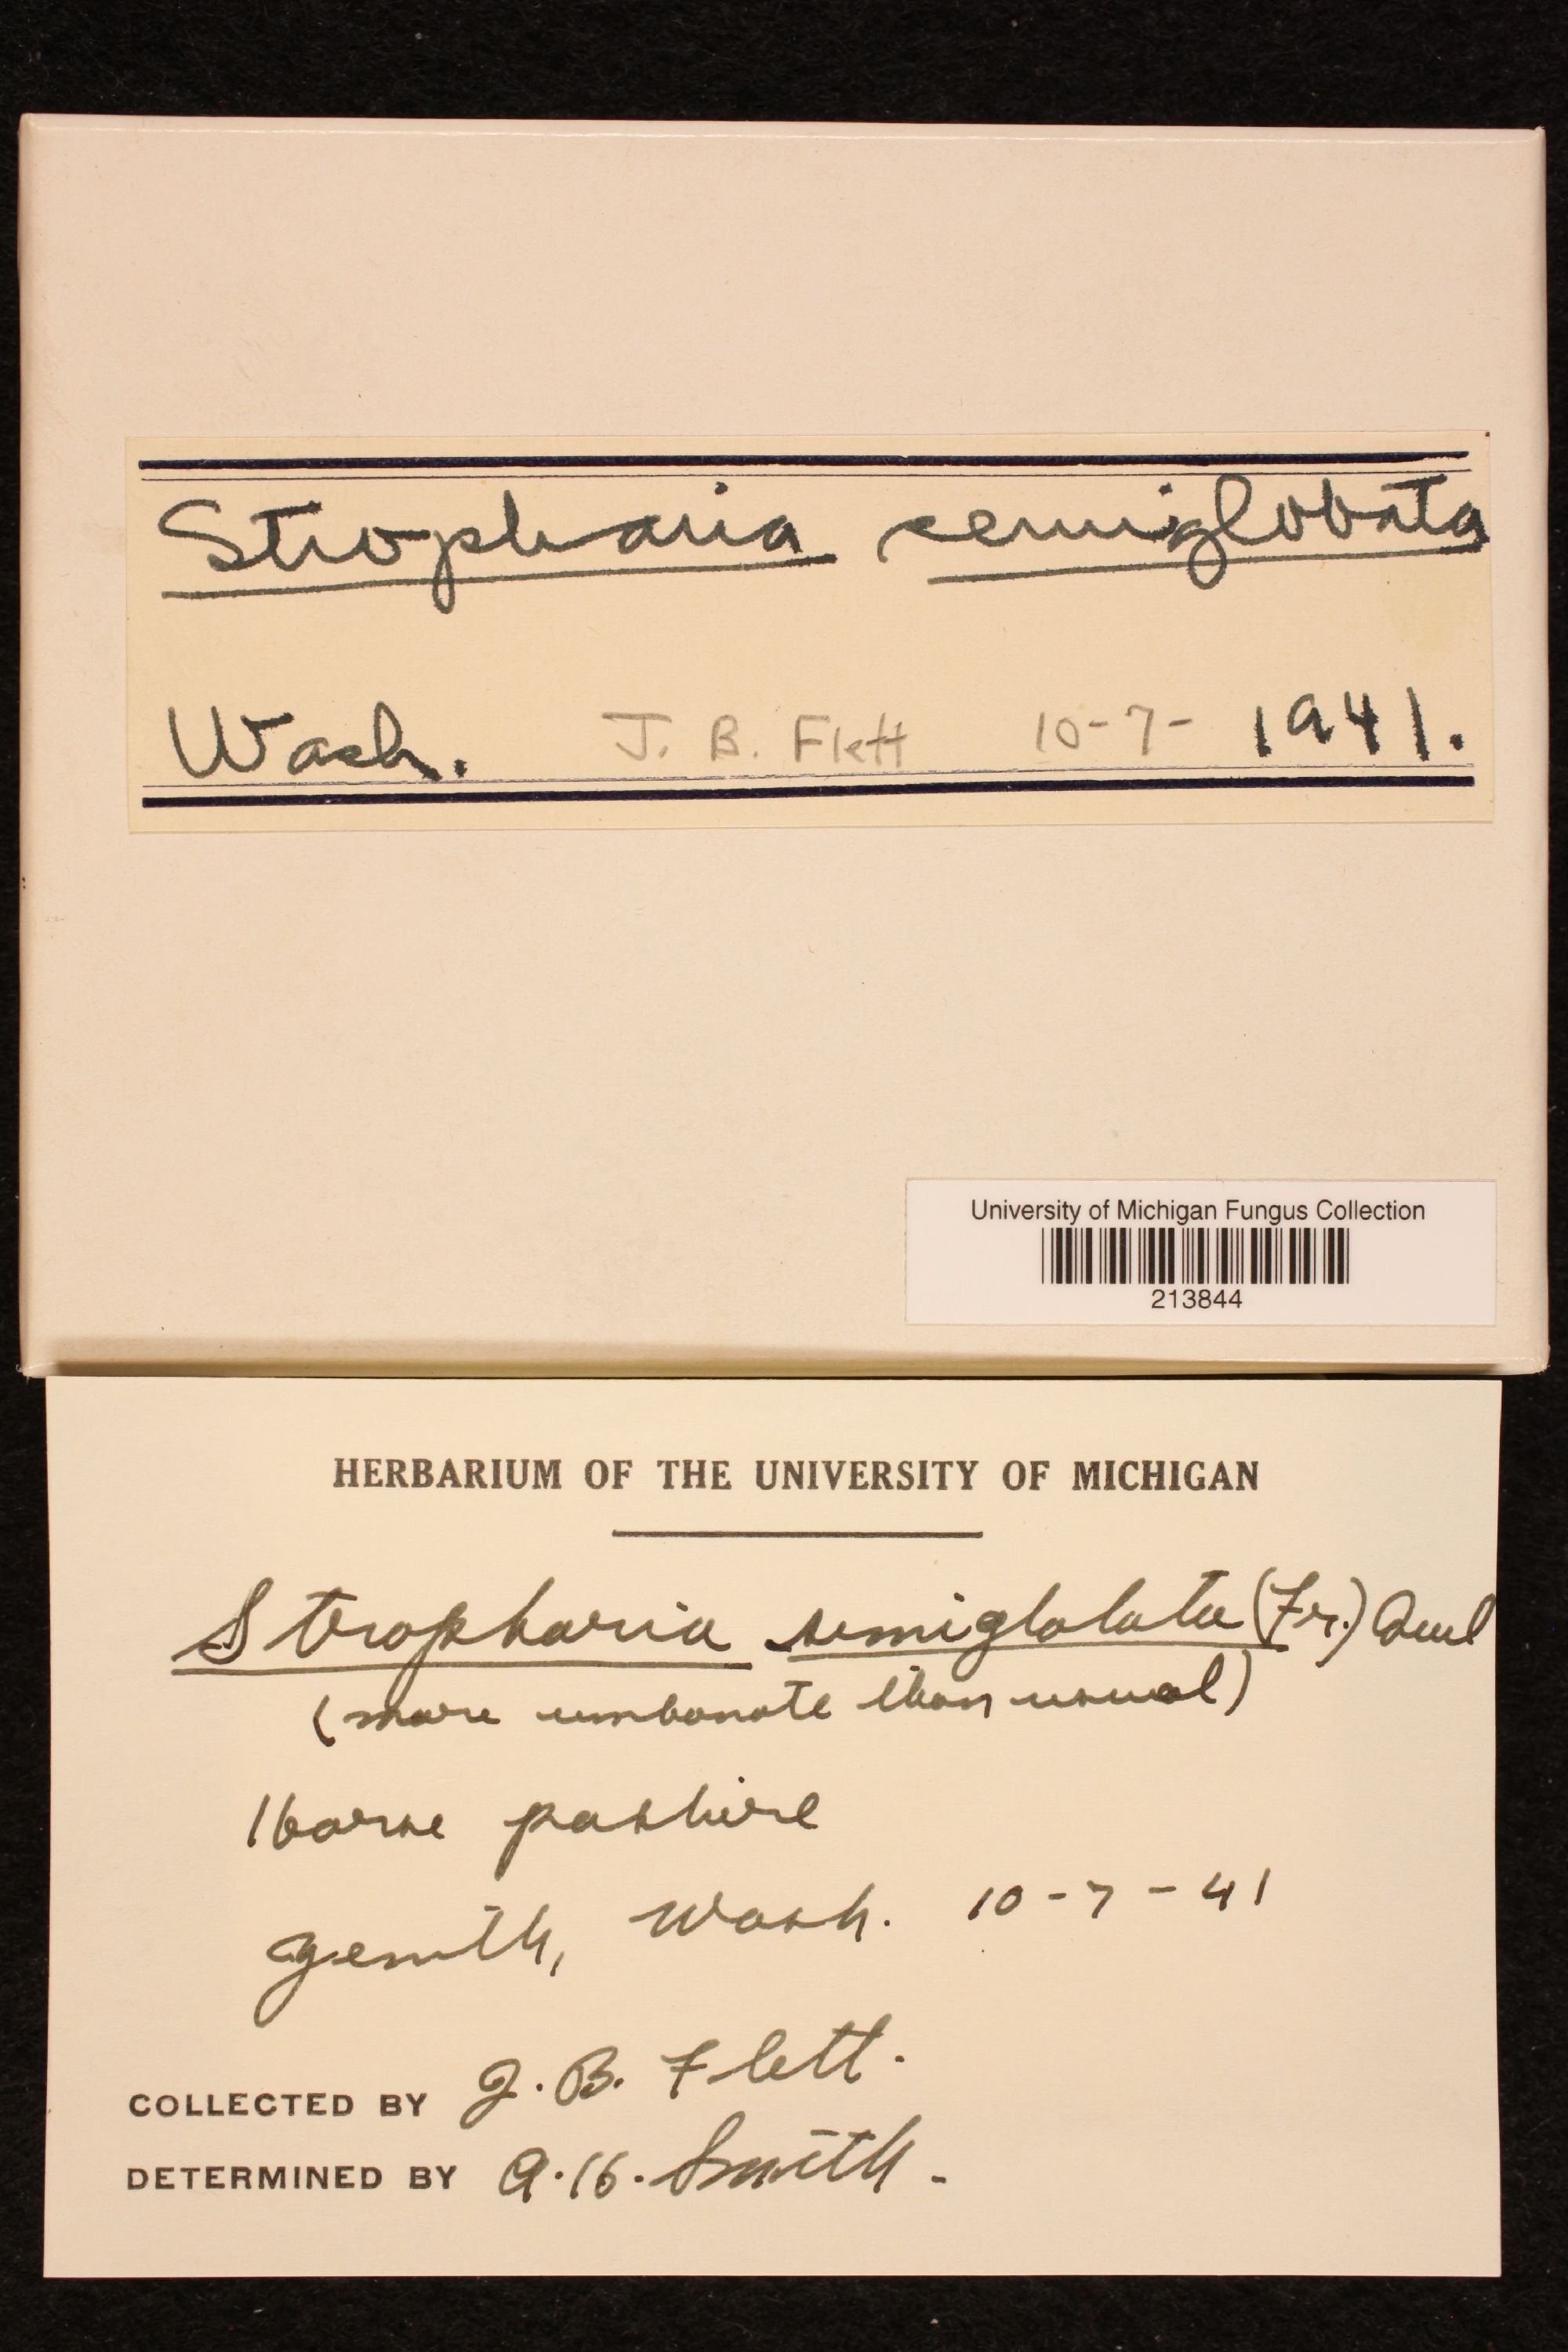 Stropharia semiglobata
Wash. J. B. Flett 10-7- 1941.
University of Michigan Fungus Collection
213844
HERBARIUM OF THE UNIVERSITY OF MICHIGAN
Stropharia semiglobata (Fr.) Quel
(more umbonate than usual)
Horse pasture
Zenith, Wash. 10-7-41
COLLECTED BY J. B. Flett.
DETERMINED BY A. H. Smith.